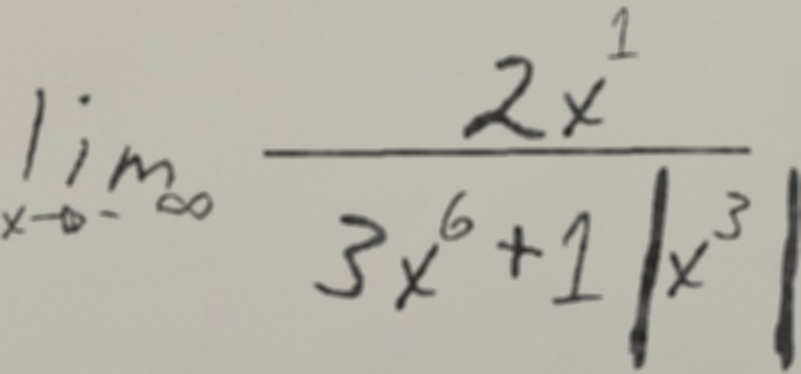 lim_{x→-∞} \frac{2x^1}{3x^6+1|x^3|}